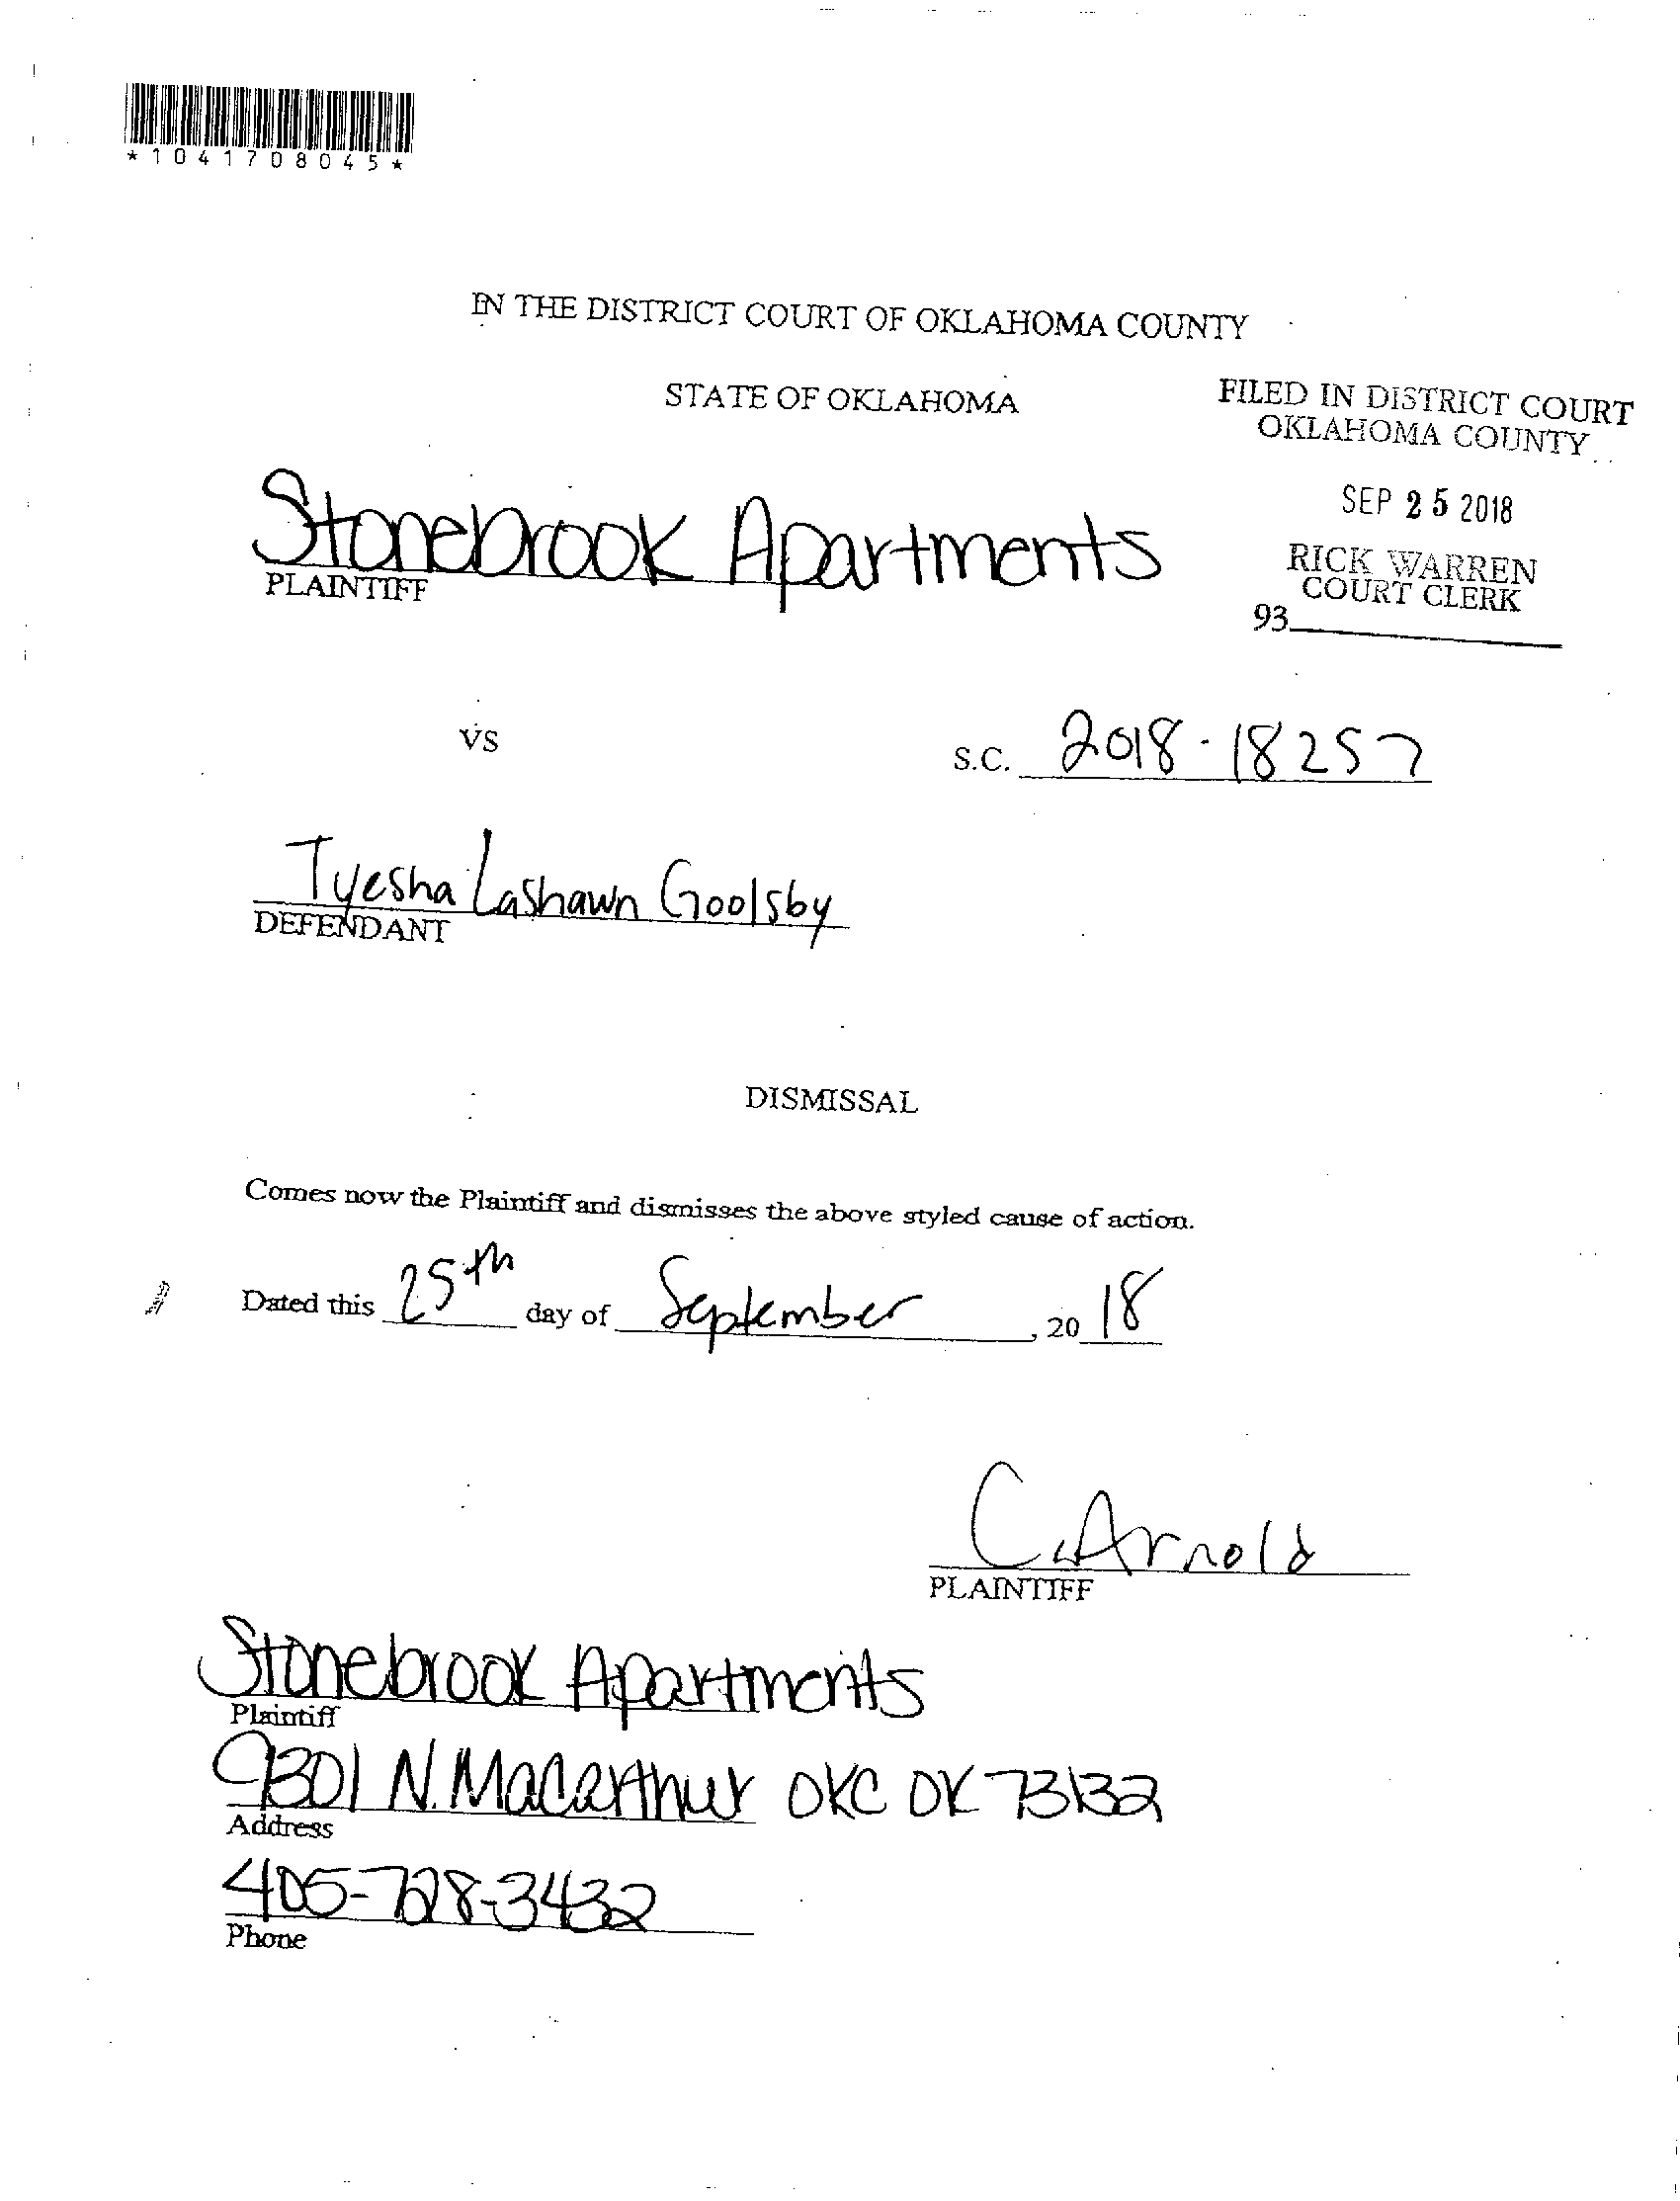 *1041708045*
IN THE DISTRICT COURT OF OKLAHOMA COUNTY
STATE OF OKLAHOMA
FILED IN DISTRICT COURT
OKLAHOMA COUNTY
SEP 25 2018
RICK WARREN
COURT CLERK
93
Stonebrook Apartments
PLAINTIFF
VS
S.C. 2018-18257
Tyesha Lashawn Goolsby
DEFENDANT
DISMISSAL
Comes now the Plaintiff and dismisses the above styled cause of action.
Dated this 25th day of September, 2018
C. Arnold
PLAINTIFF
Stonebrook Apartments
Plaintiff
9301 N. MacArthur OKC OK 73132
Address
405-728-3432
Phone